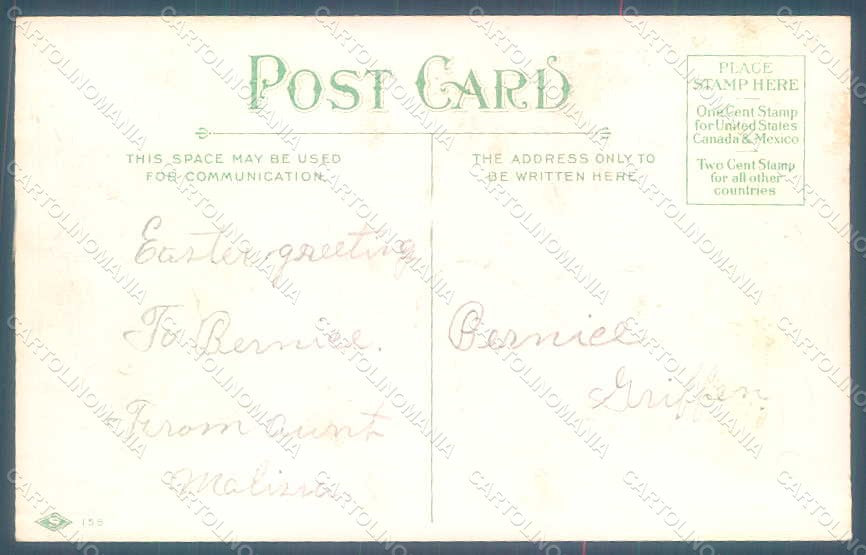 POST CARD
PLACE
STAMP HERE
One Cent Stamp
for United States
Canada & Mexico
Two Cent Stamp
for all other
countries
THIS SPACE MAY BE USED
FOR COMMUNICATION.
THE ADDRESS ONLY TO
BE WRITTEN HERE
Easter greeting
To Bernice.
From aunt
Malissa
Bernice
Griffen.
S 156
CARTOLINOMANIA